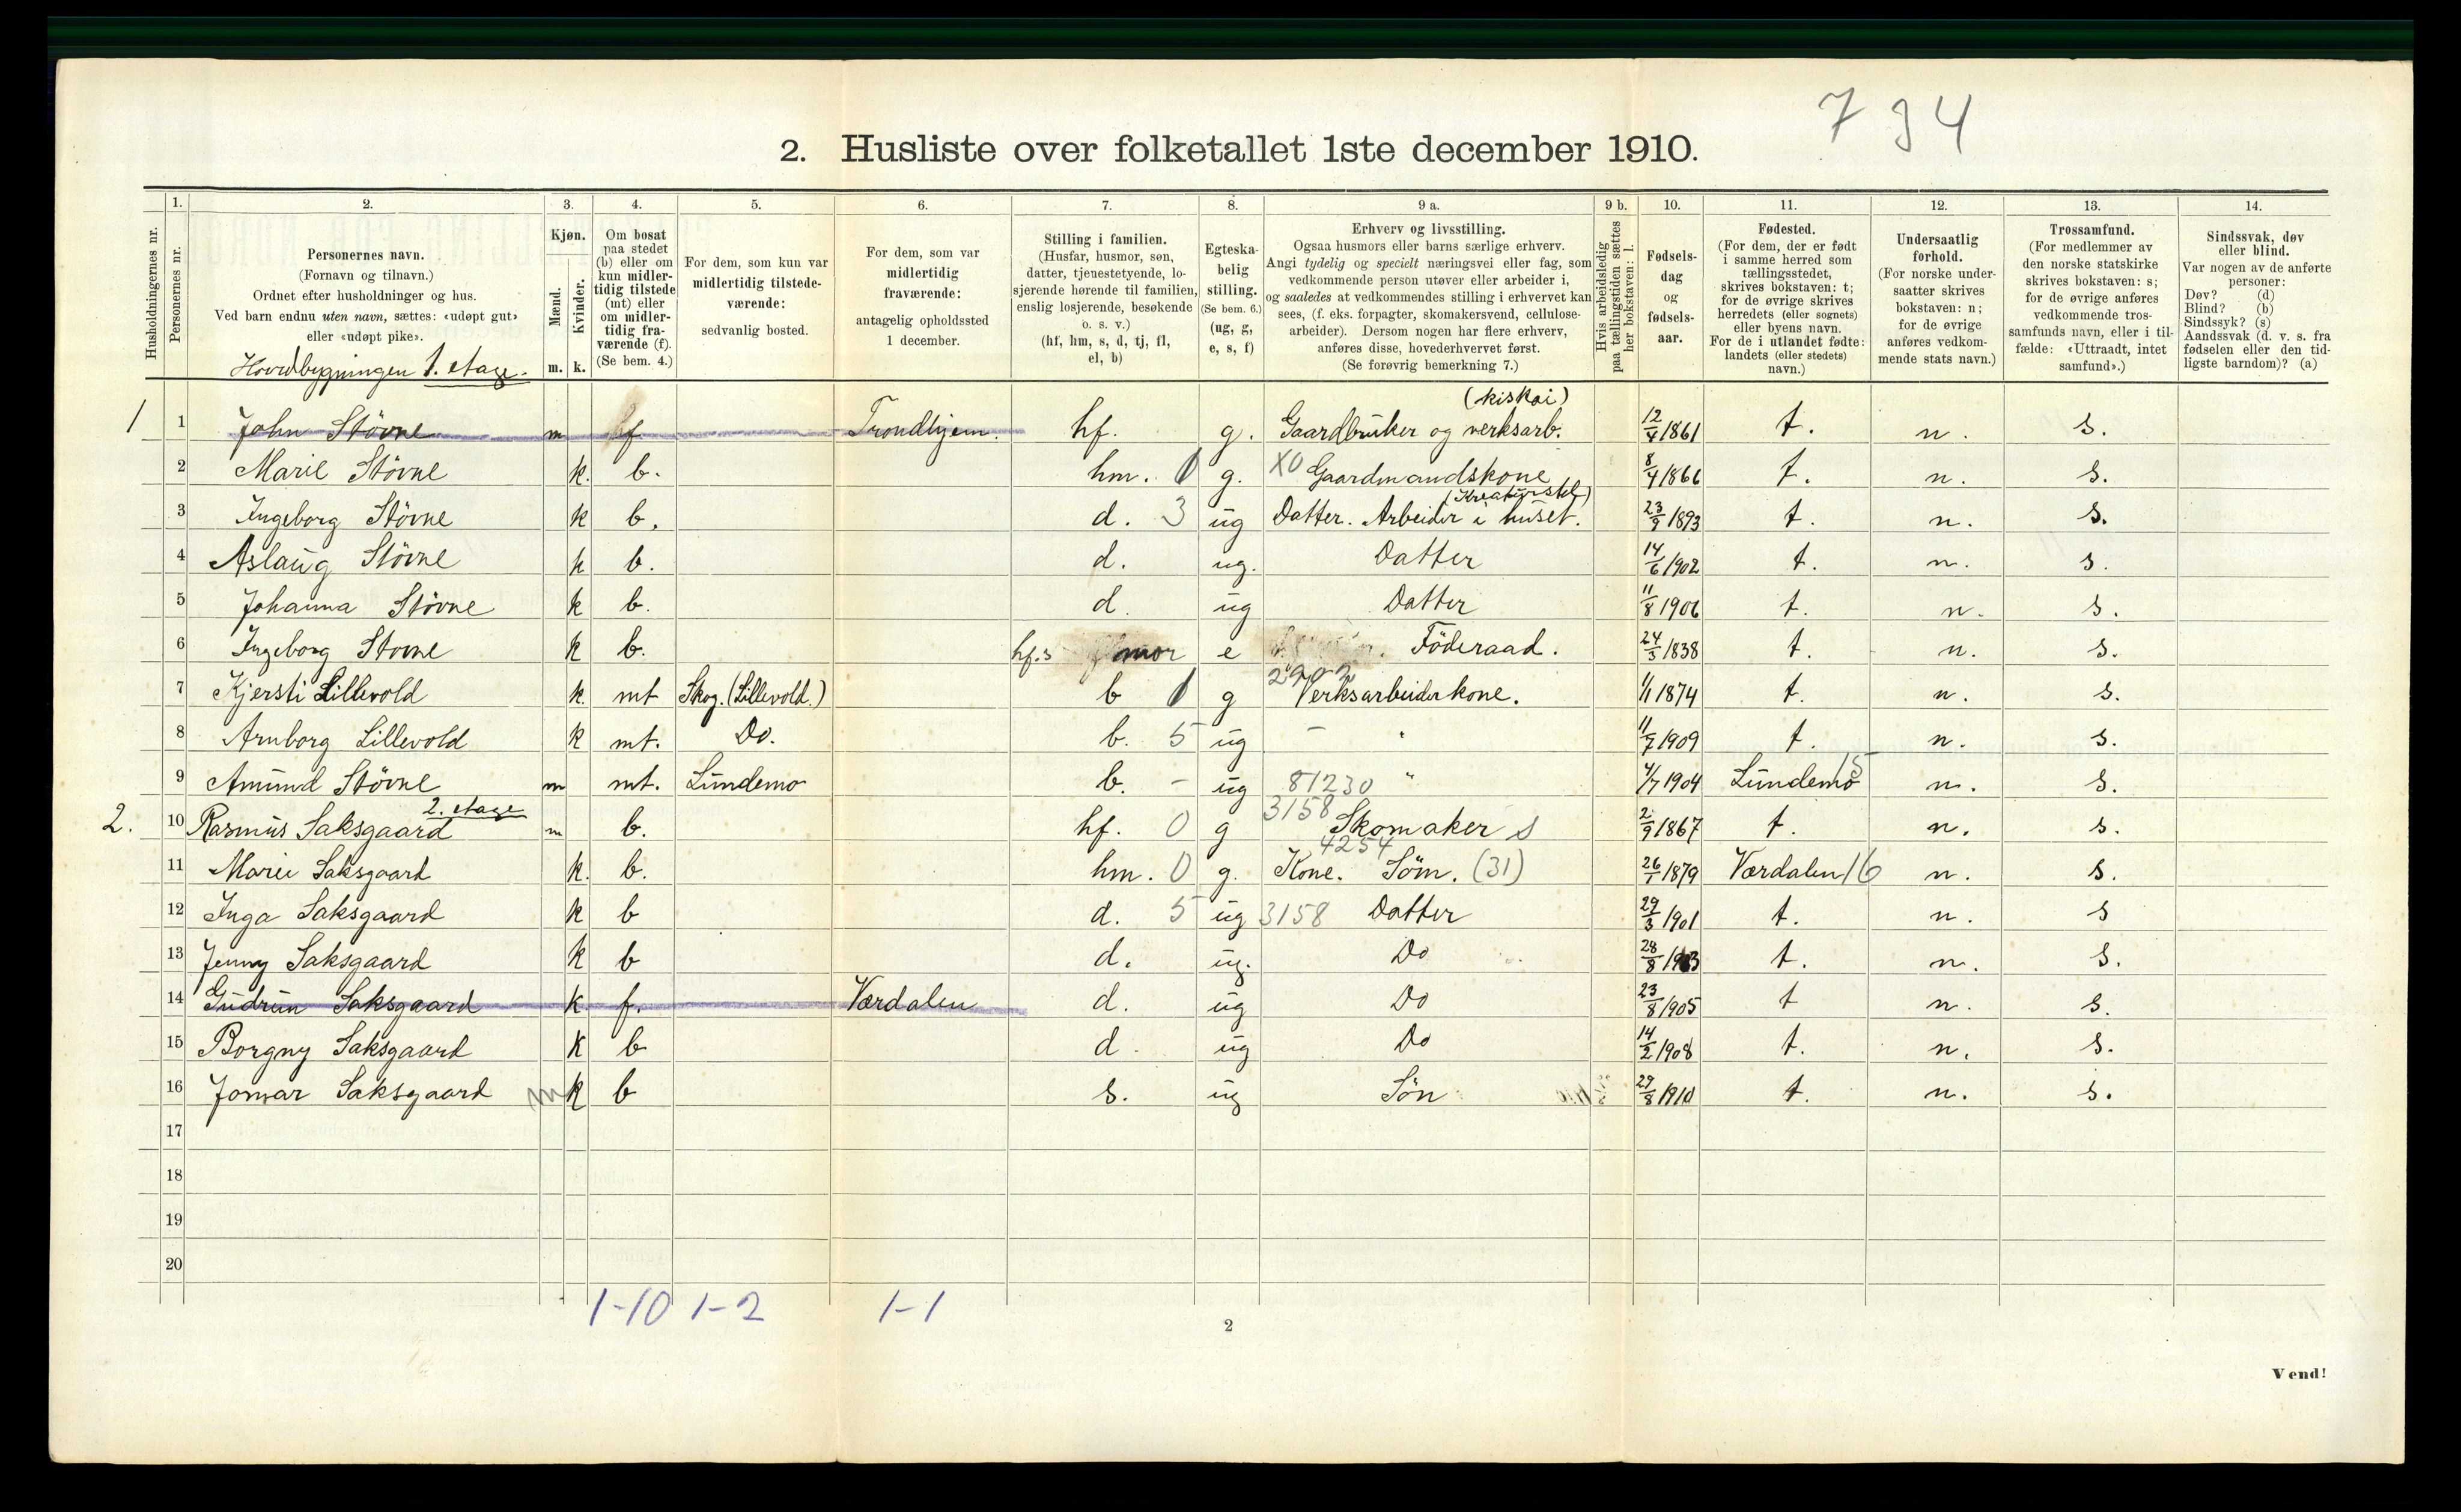 7 3 4
2. Husliste over folketallet 1ste december 1910.
Husholdningernes nr.
1. Personernes nr.
2. Personernes navn.
(Fornavn og tilnavn.)
Ordnet efter husholdninger og hus.
Ved barn endnu uten navn, sættes: «udøpt gut»
eller «udøpt pike».
Hovedbygningen 1. etage.
3. Kjøn.
Mænd. m.
Kvinder. k.
4. Om bosat
paa stedet
(b) eller om
kun midler-
tidig tilstede
(mt) eller
om midler-
tidig fra-
værende (f).
(Se bem. 4.)
5. For dem, som kun var
midlertidig tilstede-
værende:
sedvanlig bosted.
6. For dem, som var
midlertidig
fraværende:
antagelig opholdssted
1 december.
7. Stilling i familien.
(Husfar, husmor, søn,
datter, tjenestetyende, lo-
sjerende hørende til familien,
enslig losjerende, besøkende
o. s. v.)
(hf, hm, s, d, tj, fl,
el, b)
8. Egteska-
belig
stilling.
(Se bem. 6.)
(ug, g,
e, s, f)
9 a. Erhverv og livsstilling.
Ogsaa husmors eller barns særlige erhverv.
Angi tydelig og specielt næringsvei eller fag, som
vedkommende person utøver eller arbeider i,
og saaledes at vedkommendes stilling i erhvervet kan
sees, (f. eks. forpagter, skomakersvend, cellulose-
arbeider). Dersom nogen har flere erhverv,
anføres disse, hovederhvervet først.
(Se forøvrig bemerkning 7.)
9 b. Hvis arbeidsledig
paa tællingstiden sættes
her bokstaven: l.
10. Fødsels-
dag
og
fødsels-
aar.
11. Fødested.
(For dem, der er født
i samme herred som
tællingsstedet,
skrives bokstaven: t;
for de øvrige skrives
herredets (eller sognets)
eller byens navn.
For de i utlandet fødte:
landets (eller stedets)
navn.)
12. Undersaatlig
forhold.
(For norske under-
saatter skrives
bokstaven: n;
for de øvrige
anføres vedkom-
mende stats navn.)
13. Trossamfund.
(For medlemmer av
den norske statskirke
skrives bokstaven: s;
for de øvrige anføres
vedkommende tros-
samfunds navn, eller i til-
fælde: «Uttraadt, intet
samfund».)
14. Sindssvak, døv
eller blind.
Var nogen av de anførte
personer:
Døv? (d)
Blind? (b)
Sindssyk? (s)
Aandssvak (d. v. s. fra
fødselen eller den tid-
ligste barndom)? (a)
(kiskai)
1 1 John Störne m f Trondhjem. hf. g. Gaardbruker og verksarb. 12/4 1861 t. n. s.
2 Marie Störne k. b. hm. 0 g. X0 Gaardmandskone 8/4 1866 t. n. s.
(Kreaturstel)
3 Ingeborg Störne k b. d. 3 ug Datter. Arbeider i huset. 23/9 1893 t. n. s.
4 Aslaug Störne k b. d. ug. Datter 14/6 1902 t. n. s.
5 Johanna Störne k b. d. ug Datter 11/8 1906 t. n. s.
6 Ingeborg Storne k b. hf.s mor e Föderaad. 24/3 1838 t. n. s.
7 Kjersti Lillevold k. mt Skog. (Lillevold.) b g Verksarbeiderkone. 1/1 1874 t. n. s.
8 Arnborg Lillevold k mt. Do. b. 5 ug - " 11/7 1909 t. n. s.
9 Amund Störne m mt. Lundemo b. - ug 81230 " 4/7 1904 Lundemo 15 n. s.
2. etage
2. 10 Rasmus Saksgaard m b. hf. 0 g 3158 Skomaker s 2/9 1867 t. n. s.
4254
11 Marie Saksgaard k. b. hm. 0 g. Kone. Söm. (31) 26/1 1879 Værdalen 16 n. s.
12 Inga Saksgaard k b d. 5 ug 3158 Datter 29/3 1901 t. n. s
13 Jenny Saksgaard k b d. ug. Do 28/8 1903 t. n. s.
14 Gudrun Saksgaard k f. Værdalen d. ug Do 23/8 1905 t n. s.
15 Borgny Saksgaard k b d. ug Do 14/2 1908 t. n. s.
16 Jomar Saksgaard m k b s. ug Sön 29/8 1910 t. n. s.
17
18
19
20
1-10 1-2 1-1
2
Vend!